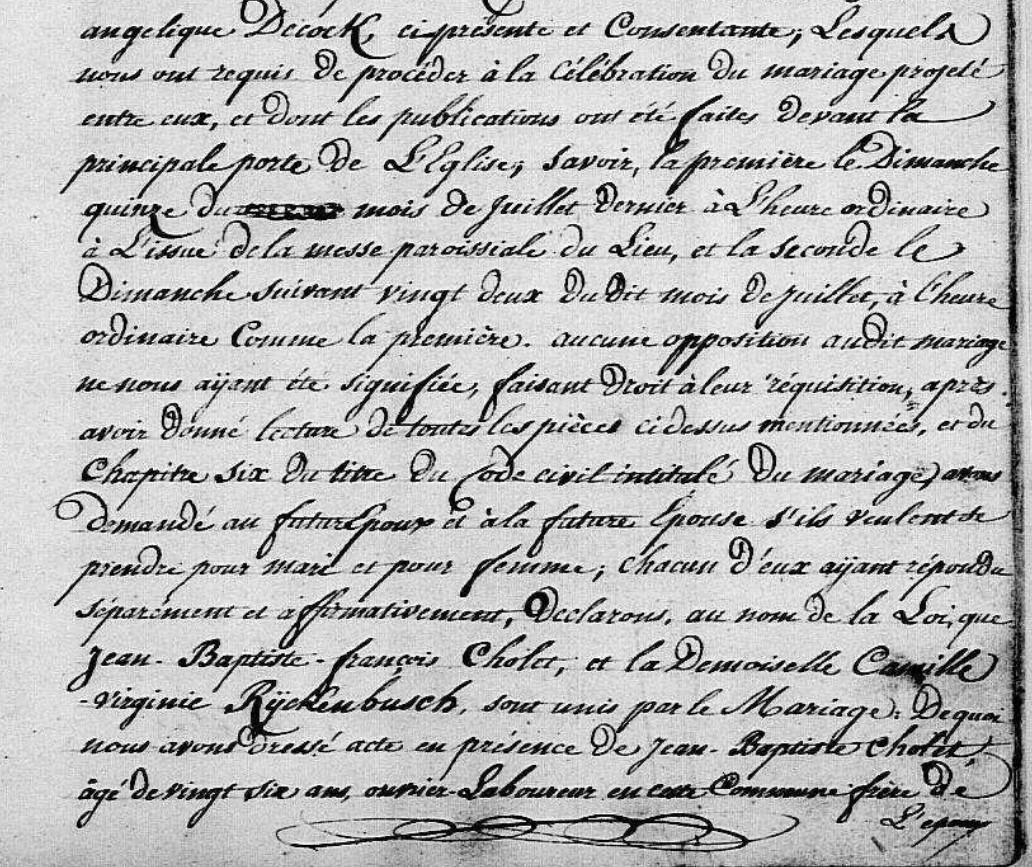 angelique Decock, ci présente et Consentante, Lesquels
nous ont requis de procéder à la Célébration du mariage projeté
entre eux, et dont les publications ont été faites devant la
principale porte de L'Eglise, Savoir, la première le Dimanche
quinze du mois de Juillet dernier à L'heure ordinaire
à L'issue de la messe paroissiale du Lieu, et la seconde le
Dimanche suivant vingt deux du Dit mois de Juillet, à l'heure
ordinaire Comme la première. aucune opposition audit mariage
ne nous aÿant été signifiée, faisant Droit à leur réquisition, après
avoir donné lecture de toutes les pièces ci dessus mentionnées, et du
Chapitre six du titre du Code civil intitulé Du mariage, avons
Demandé au futur Epoux et à la future Epouse s'ils veulent se
prendre pour mari et pour femme, chacun d'eux aÿant répondu
séparément et affirmativement, Declarons, au nom de la Loi, que
Jean-Baptiste-françois Cholet, et la Demoiselle Camille
-virginie Rÿckenbusch, sont unis par le Mariage. De quoi
nous avons dressé acte en présence de Jean-Baptiste Cholet
âgé de vingt six ans, ouvrier-Laboureur en cette Commune frère de
L'epoux